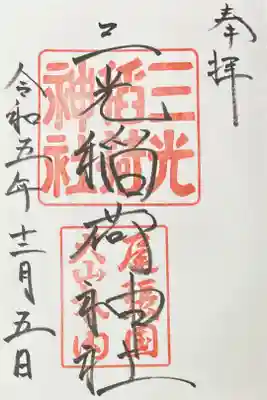 奉拝
三光稲荷神社
令和五年十二月五日
三光
稲荷
神社
尾張国
犬山城内